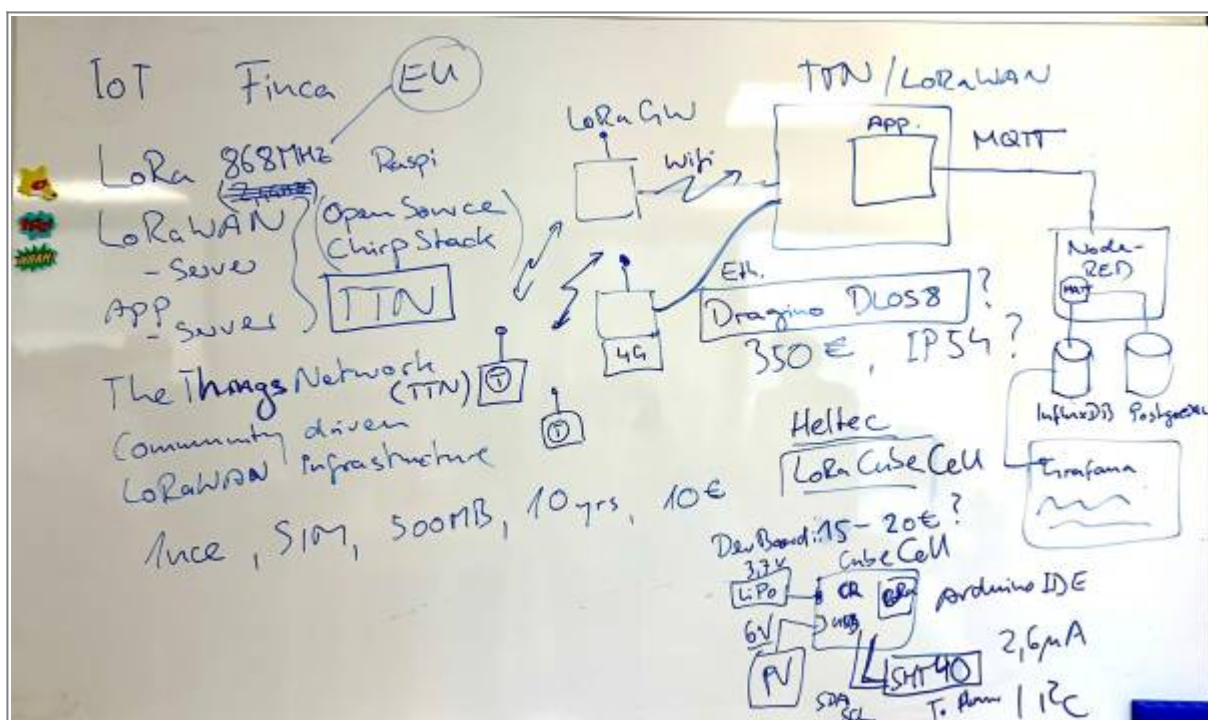 IoT Finca EU
LoRa 868MHz Raspi
LoRaWAN
- Server
App
- Server
(Open Source
ChirpStack)
TTN
The Things Network
(TTN)
Community driven
LoRaWAN Infrastructure
1nce, SIM, 500MB, 10yrs, 10€
T
T
LoRa GW
Wifi
4G
Eth.
TTN/LoRaWAN
App.
MQTT
Dragino DLOS8 ?
350€, IP54?
Node-
RED
MQTT
InfluxDB
Grafana
Heltec
LoRa CubeCell
DevBoard: 15-20€?
CubeCell
3,7V
LiPo
6V
PV
USB
Arduino IDE
SHT40
2,6µA
SDA
SCL
I²C